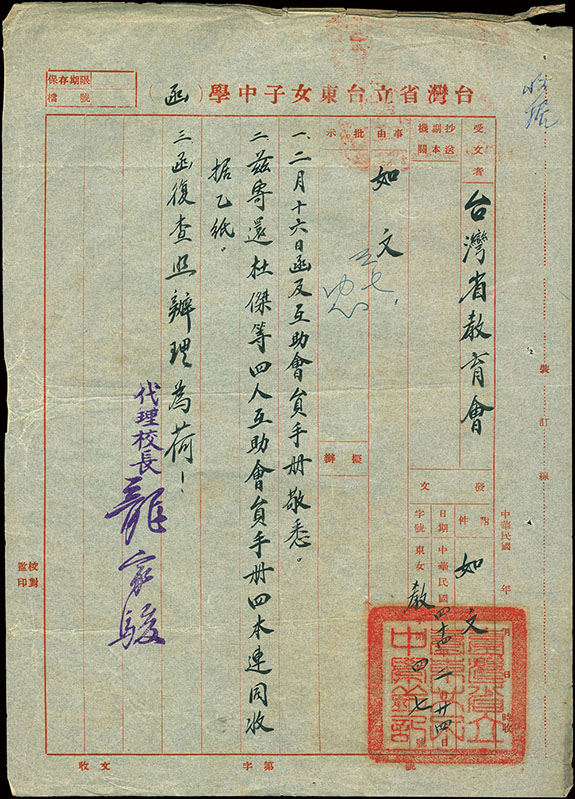 保存期限
檔號
台灣省立台東女子中學（函）
受文者
台灣省教育會
抄送副本機關
事由
如文
批示
擬辦
發文
附件
如文
日期
中華民國四十四 二 廿四日
字號
東女教
四七
號
一、二月十六日函及互助會員手册敬悉。
二、茲寄還杜傑等四人互助會員手册四本連同收
据乙紙。
三、函復查照辦理為荷！
代理校長
龍家駿
校對
監印
收文
字第
號
中華民國 年 月 日 時收
裝訂線